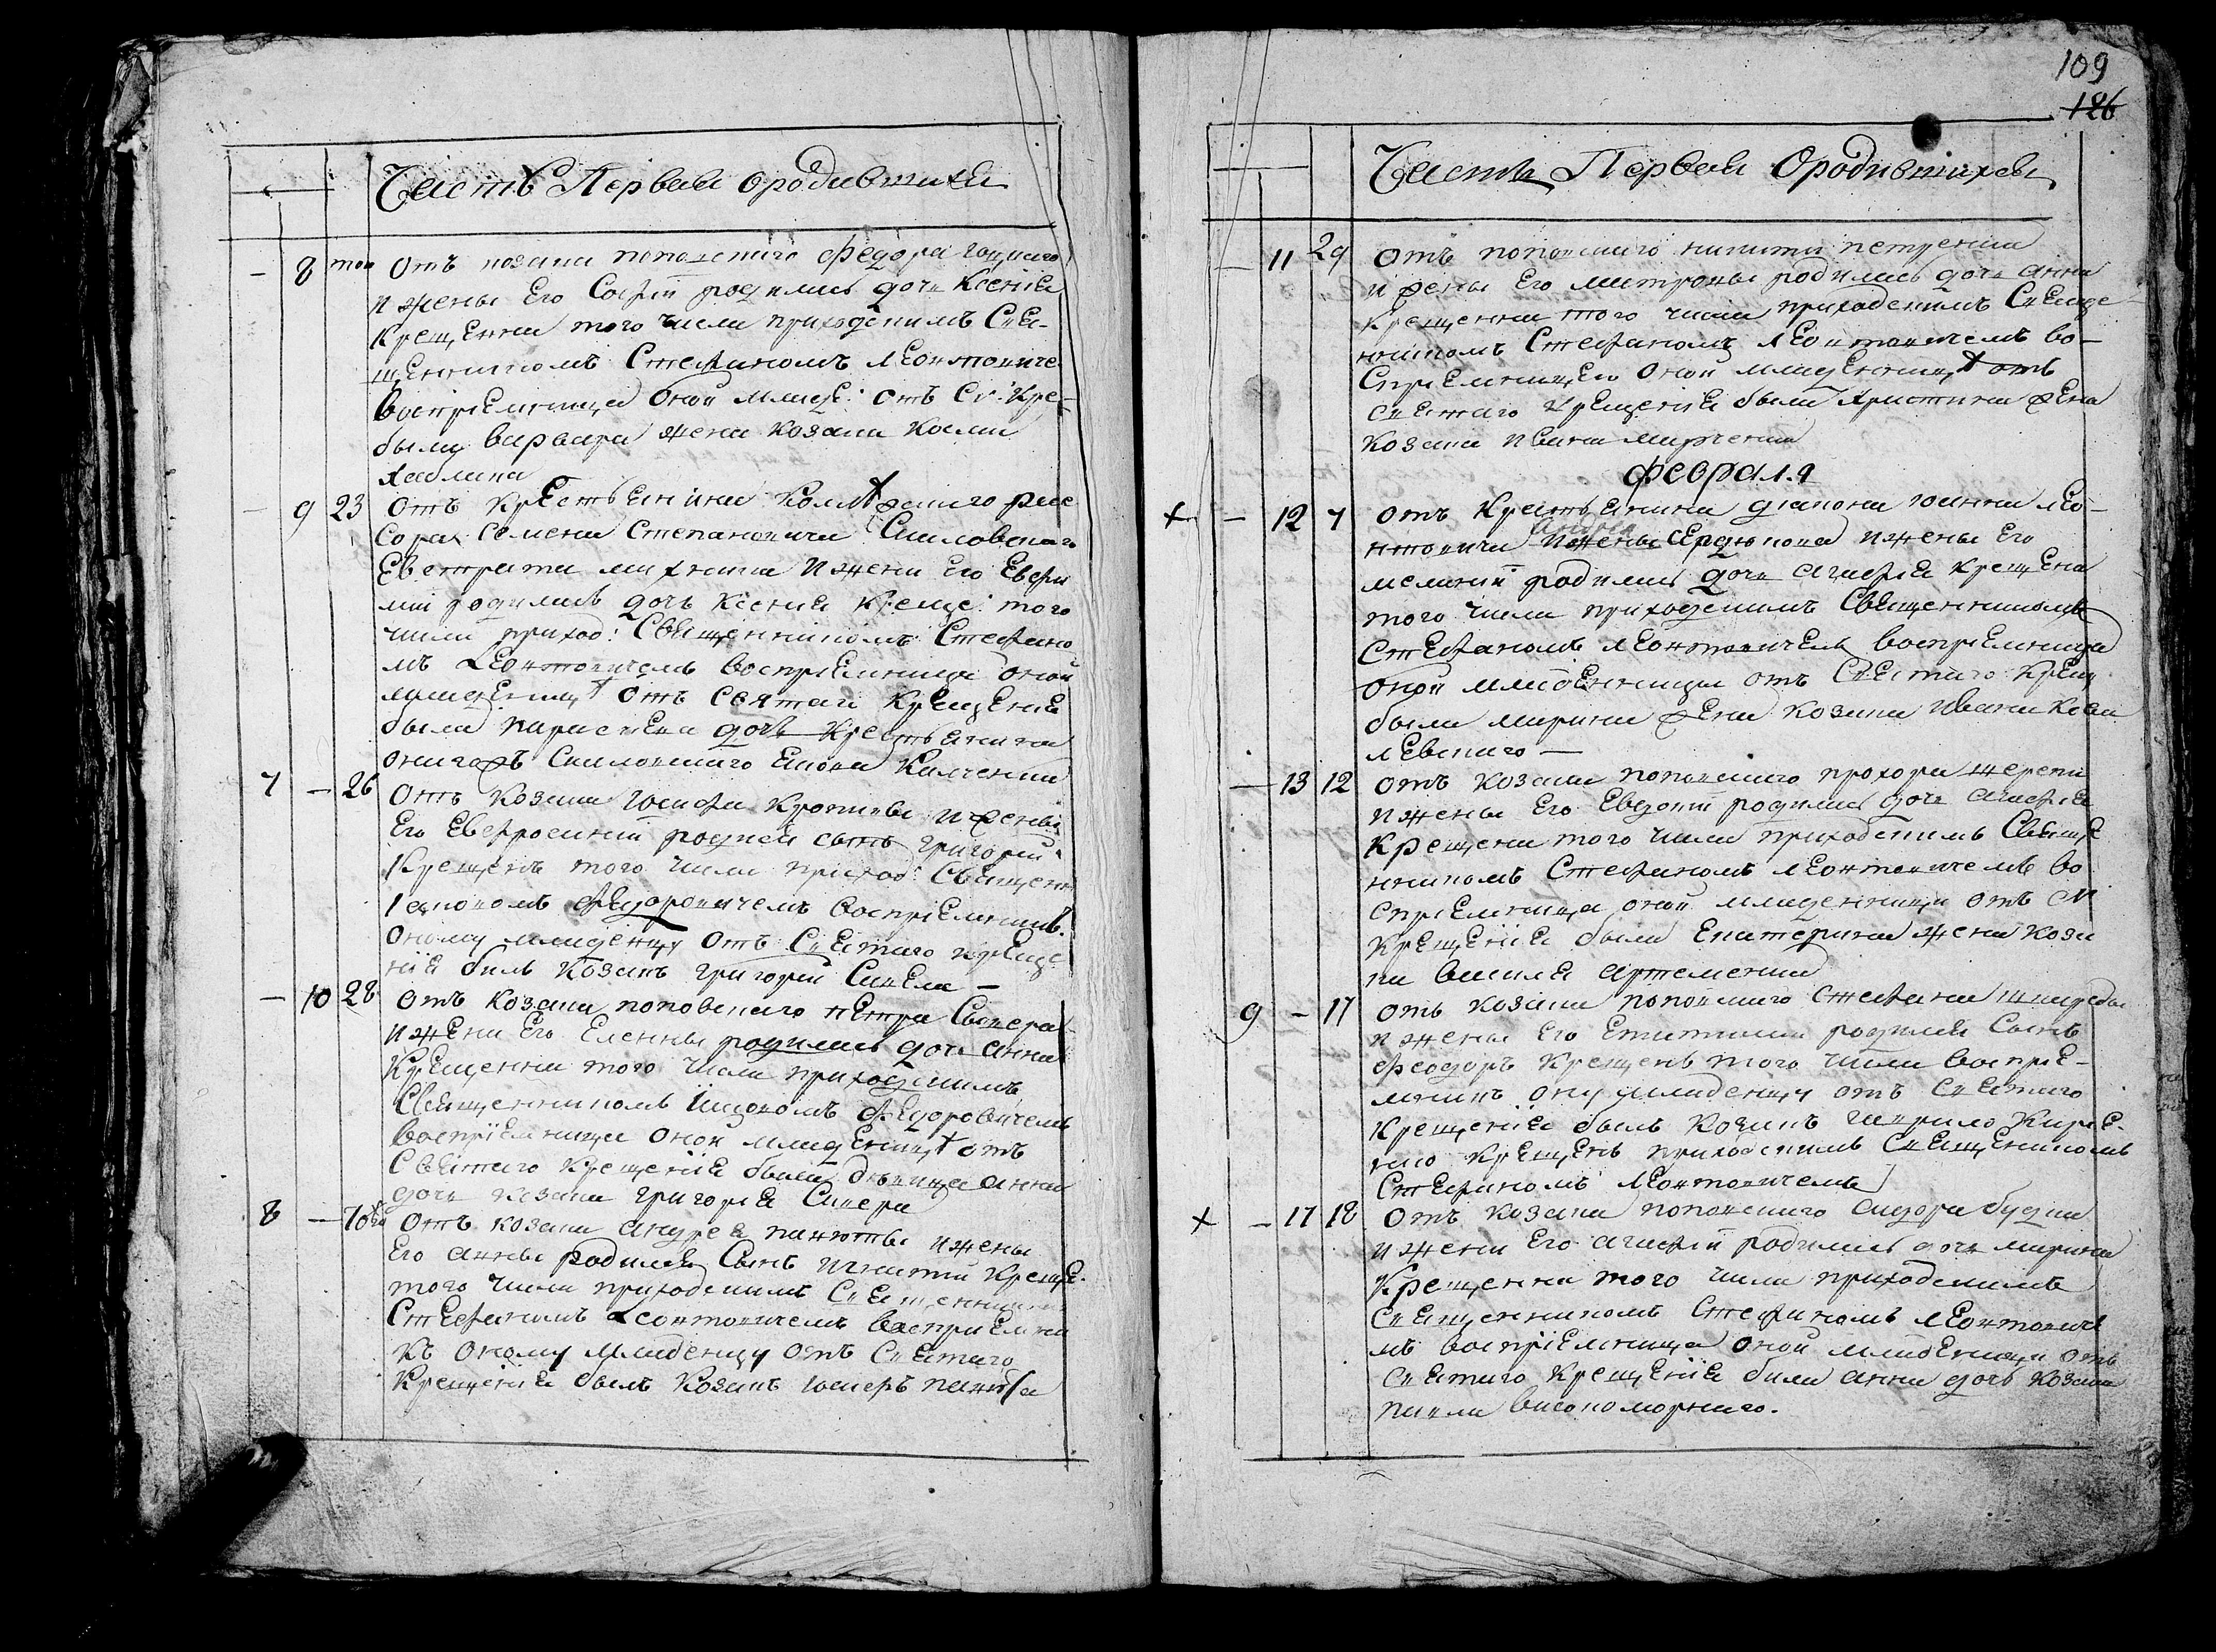 Часть Первая о родившихся
8 того Отъ козака поповского Федора
и жены Его Софіи родилась дочь Ксенія
крещенна того числа приходскимъ Свя-
щенникомъ Стефаномъ Леонтовиче
воспріемница оной младе: отъ св: кре
была варвара жена козака Космы
9 23 Отъ крестьянина
Семена Степановича
Евстратія и жени Его Евфи
міи родилась дочь Ксенія креще: того
числа приход: Священникомъ Стефано
мъ Леонтовичемъ воспріемница оной
младеницы отъ святаго крещенія
была дочь крестьянина
7 – 26 Отъ козака Іосифа и жены
Его Евфросиніи родился сынъ григорій
крещенъ того числа приход: Священ
Іаковомъ Федоровичемъ воспріемникъ
оному младенцу отъ Святаго креще
нія билъ козакъ григорій
– 10 28 Отъ козака поповского петра
и жени Его Еленны родилась дочь анна
Крещенна того числа приходскимъ
Священникомъ Федоровичемъ
воспріемница оной младеницы отъ
Святаго крещенія была дѣвица анна
дочь козака григорія
8 – Отъ козака андрея и жены
Его анны родился Сынъ игнатій креще:
того числа приходскимъ Священникомъ
Стефаномъ Леонтовичемъ воспріемни
къ оному младенцу отъ Святаго
Крещенія былъ козакъ
109
126
Часть Первая О родившихся
– 11 29 Отъ поповского никиты петренка
и жены Его матроны родилась дочь анна
крещенна того числа приходскимъ Свяще
нникомъ Стефаномъ Леонтовичемъ во-
спріемницею оной младенницы отъ
святаго крещенія была христина жена
козака ивана марченка
Февраля
× – 12 7 Отъ крестьянина діакона іоанна лео-
нтовича андрея Сердюкова и жены Его
меланіи родилась дочь агафія крещена
того числа приходскимъ Священникомъ
Стефаномъ Леонтовичемъ воспріемница
оной младенницы отъ Святаго крещ
была марина жена козака ивана
левского –
– 13 12 Отъ козака поповского прохора
и жены Его Евдокіи родилась дочь агафія
крещена того числа приходскимъ Свяще
нникомъ Стефаномъ Леонтовичемъ во
спріемница оной младенницы отъ св
крещенія была Екатерина жена коза
ка василя артеменка
9 – 17 Отъ козака поповского Стефана
и жены Его родился Сынъ
Феодоръ крещенъ того числа воспріе-
мникъ ону младенцу отъ Святаго
крещенія былъ козакъ гаврило
крещенъ приходскимъ Священникомъ
Стефаномъ Леонтовичемъ
× – 17 18 Отъ козака поповского сидора
и жени Его агафіи родилась дочь марина
крещенна того числа приходскимъ
Священникомъ Стефаномъ Леонтовиче
мъ воспріемница оной младеници отъ
святаго крещенія била анна дочь козака
павла високоморнаго.